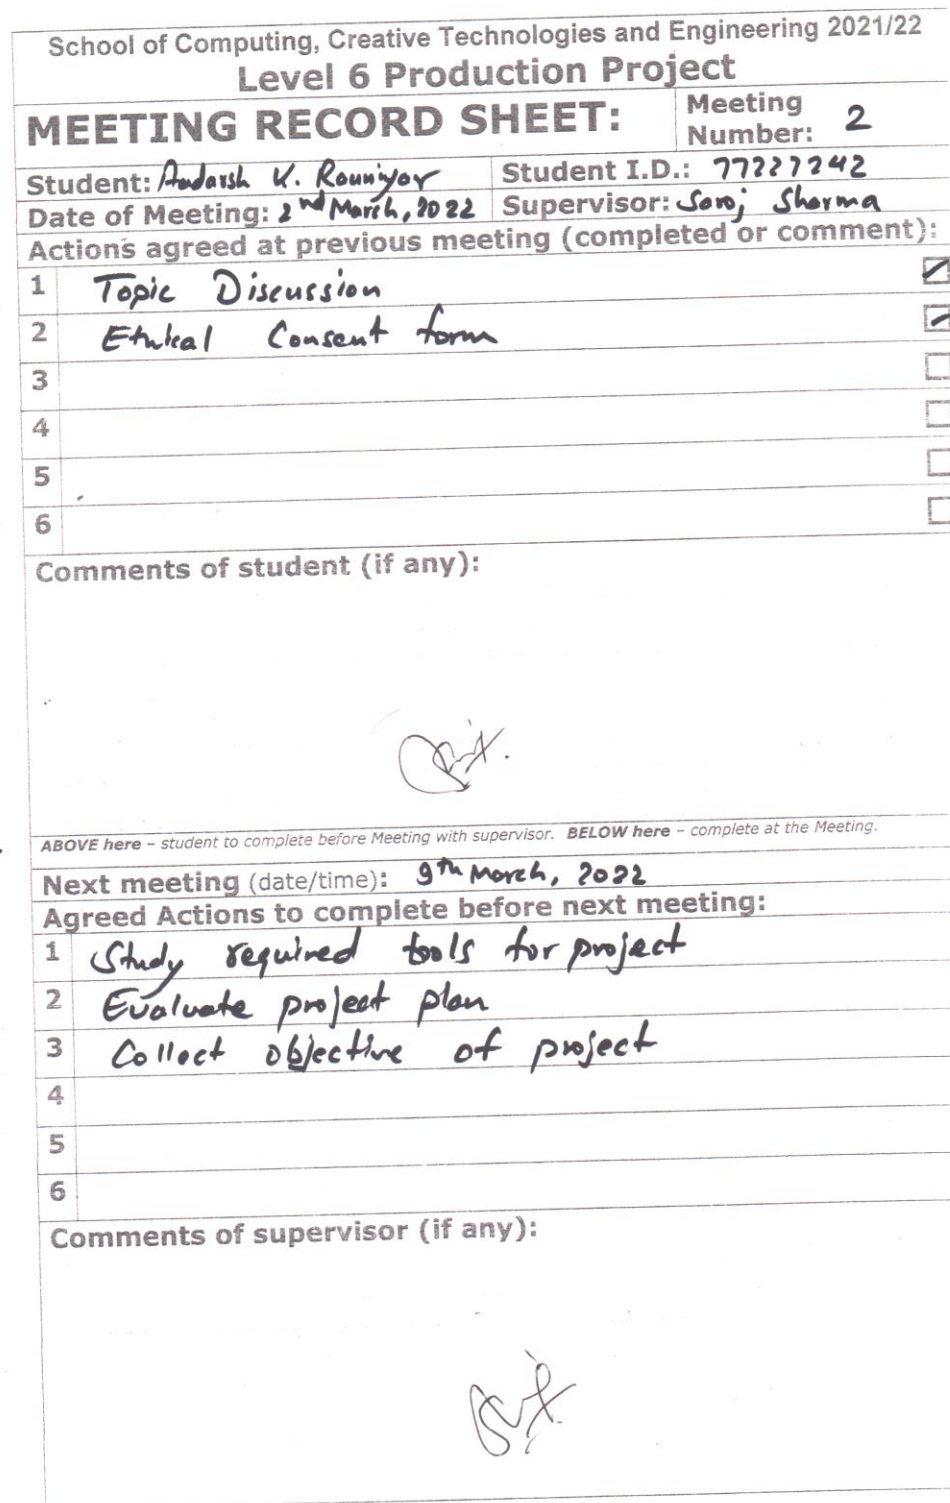 School of Computing, Creative Technologies and Engineering 2021/22
Level 6 Production Project
MEETING RECORD SHEET:
Meeting Number: 2
Student: Aadarsh K. Rouniyar
Student I.D.: 77227242
Date of Meeting: 2nd March, 2022
Supervisor: Saroj Sharma
Actions agreed at previous meeting (completed or comment):
1 Topic Discussion
2 Ethical Consent form
3
4
5
6
Comments of student (if any):
ABOVE here – student to complete before Meeting with supervisor. BELOW here – complete at the Meeting.
Next meeting (date/time): 9th March, 2022
Agreed Actions to complete before next meeting:
1 Study required tools for project
2 Evaluate project plan
3 Collect objective of project
4
5
6
Comments of supervisor (if any):